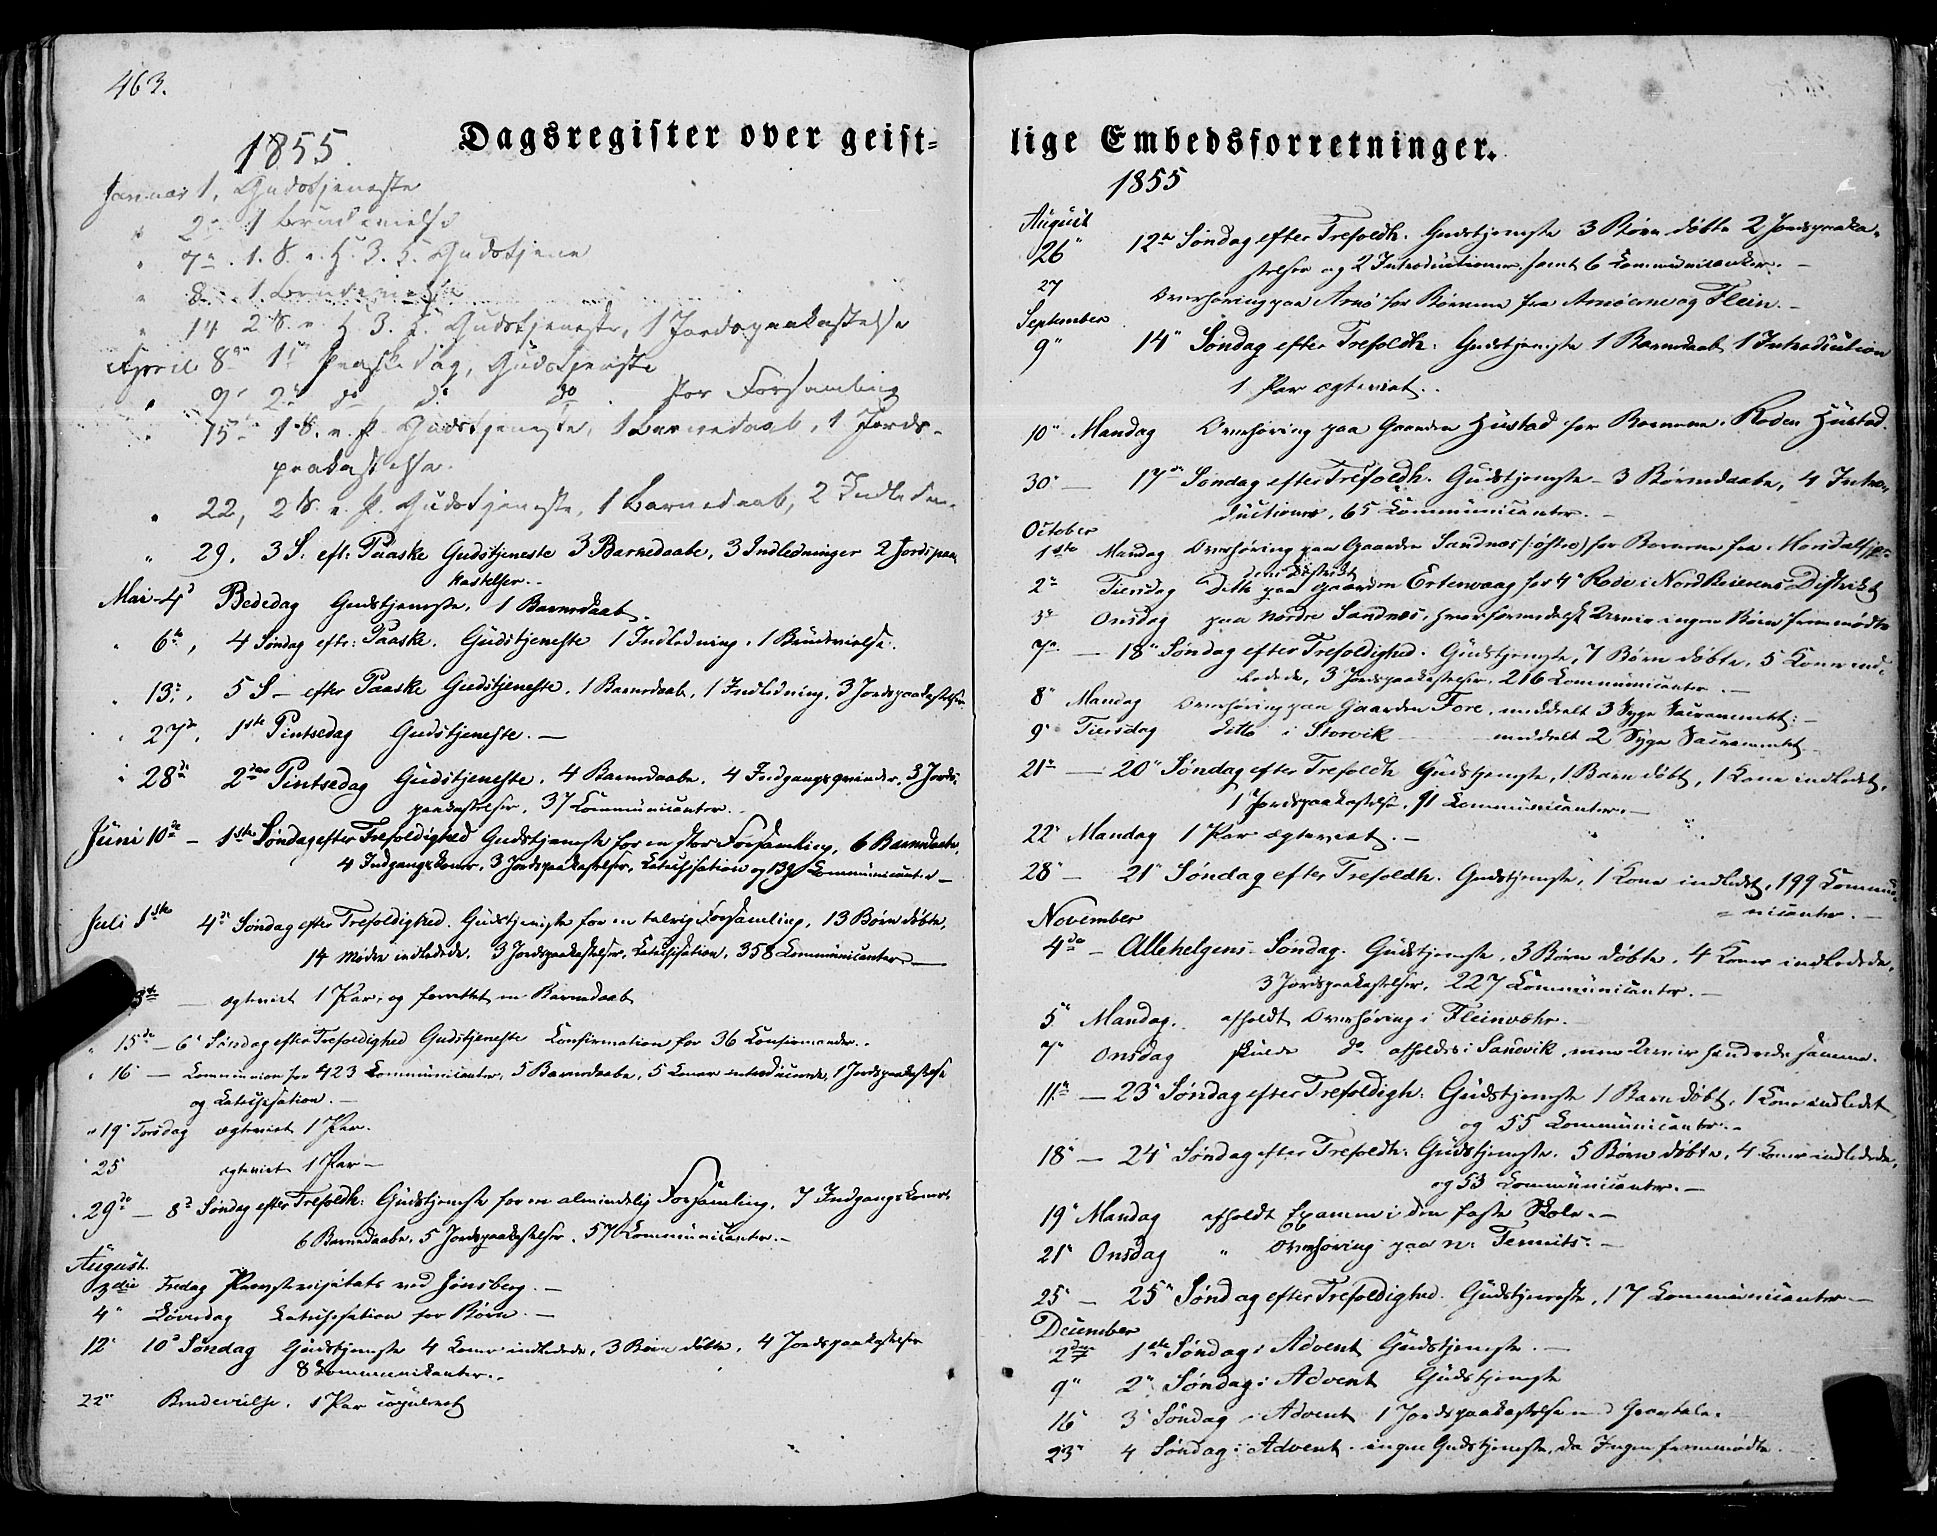 463.
Dagsregister over geist-
1855.
Januar 1, Gudstjeneste
" 2den 1 Brudevielse
" 7de. 1. S. e. H. 3. K. Gudstjene
" 8de. 1 Brudevielse
" 14 2 S. e. H. 3. K. Gudstjeneste, 1 Jordspaakastelse
April 8de 1ste Paaskedag, Gudstjeneste
" 9de 2den do do do. Stor Forsamling
" 15de 1 S. e. P. Gudstjeneste, 1 Barnedaab, 1 Jords-
paakastelse.
" 22, 2 S. e. P. Gudstjeneste, 1 Barnedaab, 2 Indledn.
" 29, 3 S. eft: Paaske Gudstjeneste 3 Barnedaabe, 3 Indledninger 2 Jordspaa
kastelser..
Mai 4de Bededag Gudstjeneste, 1 Barnedaab.
" 6te, 4 Søndag eft: Paaske. Gudstjeneste 1 Indledning, 1 Brudevielse.
" 13de, 5 S- efter Paaske Gudstjeneste, 1 Barnedaab, 1 Indledning, 3 Jordspaakastelser
" 27de, 1ste Pintsedag Gudstjeneste. —
" 28de 2den Pintsedag Gudstjeneste. 4 Barnedaabe. 4 Indgangsqvinder, 3 Jords-
paakastelser, 37 Communicanter.
Juni 10de - 1ste Søndag efter Trefoldighed Gudstjeneste for en stor Forsamling, 6 Barnedaabe,
4 Indgangskoner, 3 Jordspaakastelser, Catechisation og 139 Communicanter —
Juli 1ste 4de Søndag efter Trefoldighed. Gudstjeneste for en talrig Forsamling, 13 Børn døbte,
14 Mødre indledede, 3 Jordspaakastelser, Catechisation, 358 Communicanter. —
3de — egteviet 1 Par, og forrettet en Barnedaab
" 15de — 6te Søndag efter Trefoldighed Gudstjeneste Confirmation for 36 Confirmander..
" 16 — Communion for 423 Communicanter, 5 Barnedaabe, 5 Koner introducerede, 1 Jordspaakastelse
og Catechisation. —
" 19 Torsdag egteviet 1 Par.
" 25 egteviet 1 Par —
" 29de — 8de Søndag efter Trefoldh: Gudstjeneste for en almindelig Forsamling. 7 Indgangskoner
6 Barnedaabe, 5 Jordspaakastelser, 57 Communicanter. —
August.
3die Fredag ved Jonsberg. —
4" Løverdag Catechisation for Børn. —
12" 10de Søndag Gudstjeneste 4 Koner indledede, 3 Børn døbte, 4 Jordspaakastelser
8 Communikanter..
22" Brudevielse, 1 Par copuleret
lige Embedsforretninger.
1855
August
26" 12te Søndag efter Trefoldh. Gudstjeneste 3 Børn døbte 2 Jordspaaka-
stelser og 2 Introductioner, samt 6 Communicanter. —
27 Overhøring paa Arnø for Børnene fra Arnøerne og Flein. —
September
9" 14" Søndag efter Trefoldh: Gudstjeneste 1 Barnedaab 1 Introduction
1 Par egteviet..
10" Mandag Overhøring paa Gaarden Hustad for Børnene. Roden Hustad.
30" — 17de Søndag efter Trefoldh. Gudstjeneste - 3 Børnedaabe, 4 Intro-
ductioner, 65 Communicanter. —
October
1ste Mandag Overhøring paa Gaarden Sandnæs (østre) for Børnene fra Morsdalsfjor-
den District
2" Tiersdag Ditto paa Gaarden Ertenvaag for 4" Rode i Nord Beierens District
3de Onsdag paa Nordre Sandnæs, hvor formedelst Uveir ingen Børn fremmødte
7de — 18" Søndag efter Trefoldighed. Gudstjeneste, 7 Børn døbte, 5 Koner ind-
ledede, 3 Jordspaakastelser. 216 Communicanter. —
8" Mandag Overhøring paa Gaarden Fore, meddelt 3 Syge Sacramentet: —
9" Tiersdag ditto i Storvik — meddelt 2 Syge Sacramentet
21de — 20" Søndag efter Trefoldh Gudstjeneste, 1 Barn døbt, 1 Kone indledet,
1 Jordspaakastelse, 91 Communicanter. —
22" Mandag 1 Par egteviet. —
28" — 21" Søndag efter Trefoldh. Gudstjeneste, 1 Kone indledet, 199 Commu-
nicanter. —
November
4de — Allehelgens-Søndag. Gudstjeneste, 3 Børn døbte, 4 Koner indledede,
3 Jordspaakastelser, 227 Communicanter. —
5" Mandag. afholdt Overhøring i Fleinvær. —
7" Onsdag skulde do afholdes i Sandvik, men Uveir hindrede samme.
11te — 23" Søndag efter Trefoldigh: Gudstjeneste 1 Barn døbt, 1 Kone indledet
og 55 Communicanter. —
18" — 24" Søndag efter Trefoldh: Gudstjeneste, 5 Børn døbte, 4 Koner indledede,
og 53 Communicanter. —
19" Mandag afholdt Examen i den faste Skole. —
21" Onsdag " Overhøring paa n:
25" — 25" Søndag efter Trefoldighed. Gudstjeneste, 17 Communicanter —
December
2den 1ste Søndag i Advent Gudstjeneste. —
9" 2" Søndag i Advent Gudstjeneste
16" 3" Søndag i Advent 1 Jordspaakastelse
23" 4 Søndag i Advent. ingen Gudstjeneste, da Ingen fremmødte. —